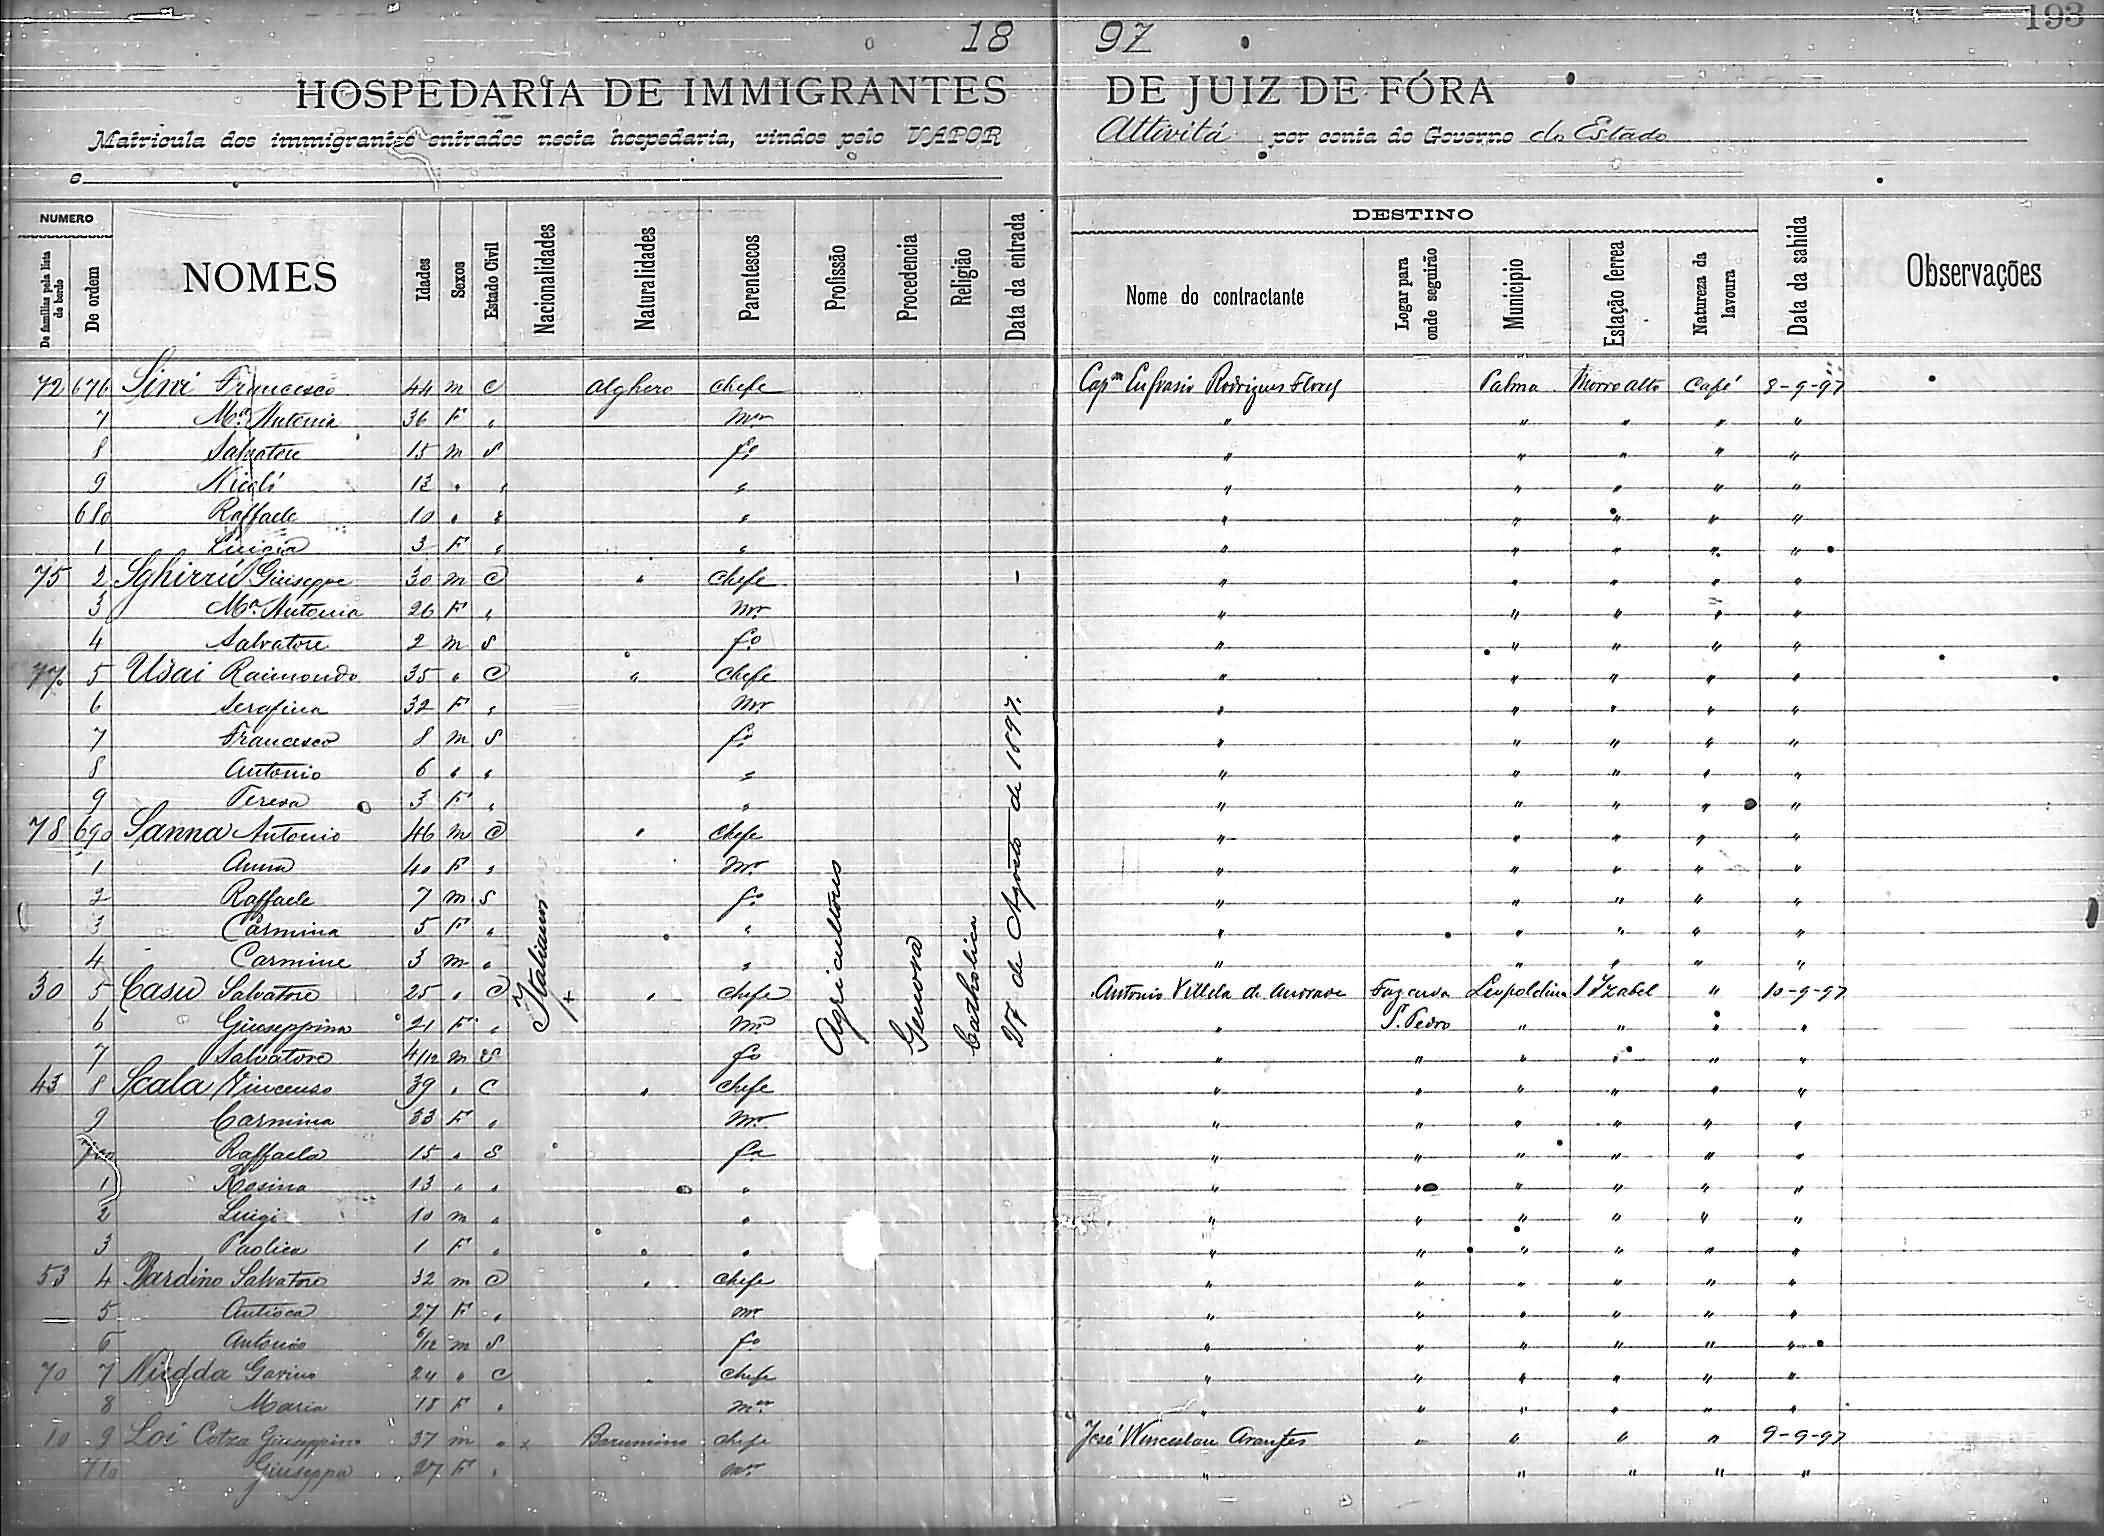 193
18 97
HOSPEDARIA DE IMMIGRANTES DE JUIZ DE FÓRA
Matricula dos immigrantes entrados nesta hospedaria, vindos pelo VAPOR Attivitá por conta do Governo do Estado
NUMERO DESTINO
De familias pela lista de bordo De ordem NOMES Idades Sexos Estado Civil Nacionalidades Naturalidades Parentescos Profissão Procedencia Religião Data da entrada Nome do contractante Logar para onde seguirão Municipio Estação ferrea Natureza da lavoura Data da sahida Observações
72 676 Sini Francesco 44 m C Alghero chefe Capm Eufrasio Rodrigues Flores Palma Morro alto Café 8-9-97
7 Ma. Antonia 36 F " mer " " " " "
8 Salvatore 15 m S fo " " " " "
9 Nicoló 13 " " " " " " " "
680 Raffaele 10 " " " " " " " "
1 Luigia 3 F " " " " " " "
75 2 Sghirrú Giuseppe 30 m C " chefe " " " " "
3 Ma. Antonia 26 F " mer " " " " "
4 Salvatore 2 m S fo " " " " "
77 5 Usai Raimondo 35 " C " chefe " " " " "
6 Serafina 32 F " mer " " " " "
7 Francesco 8 m S fo " " " " "
8 Antonio 6 " " " " " " " "
9 Teresa 3 F " " " " " " "
78 690 Sanna Antonio 46 m C " chefe " " " " "
1 Anna 40 F " mer " " " " "
2 Raffaele 7 m S fo " " " " "
3 Carmina 5 F " " " " " " "
4 Carmine 3 m " " " " " " "
30 5 Casu Salvatore 25 " C " chefe Antonio Villela de Andrade Fazenda Leopoldina S Izabel " 10-9-97
6 Giuseppina 21 F " mer " S. Pedro " " " "
7 Salvatore 4/12 m S fo " " " " " "
43 8 Scala Vincenso 39 " C " chefe " " " " " "
9 Carmina 33 F " mer " " " " " "
700 Raffaela 15 " S fa " " " " " "
1 Rosina 13 " " " " " " " " "
2 Luigi 10 m " " " " " " " "
3 Paolica 1 F " " " " " " " "
53 4 Bardino Salvatore 32 m C " chefe " " " " " "
5 Antioca 27 F " mer " " " " " "
6 Antonio 6/12 m S fo " " " " " "
70 7 Niedda Gavino 24 " C " chefe " " " " " "
8 Maria 18 F " mer " " " " " "
10 9 Loi Cotza Giuseppino 37 m " x Barumino chefe José Wenceslau Arantes " " " " 9-9-97
710 Giuseppa 27 F " mer " " " " "
Italianos
Agricultores
Genova
Catholica
27 de Agosto de 1897.